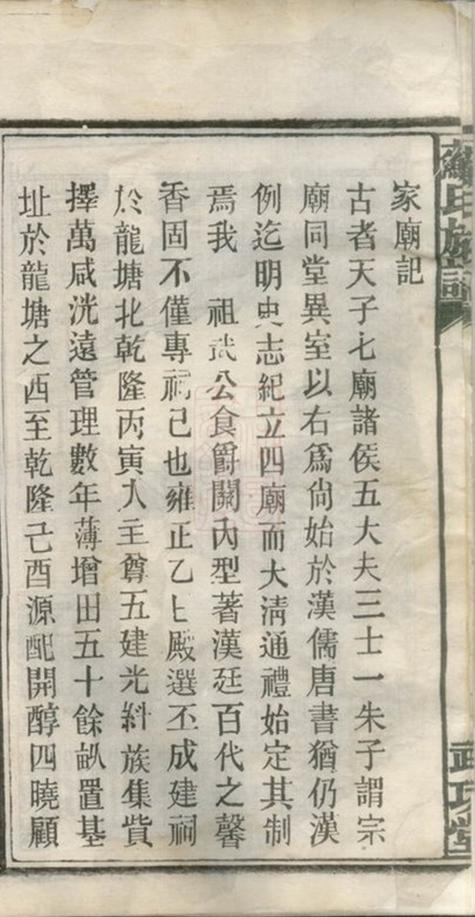 蘇氏族譜
武功堂
家廟記
古者天子七廟諸侯五大夫三士一朱子謂宗
廟同堂異室以右爲尙始於漢儒唐書猶仍漢
例迄明史志紀立四廟而大淸通禮始定其制
焉我 祖武公食爵關內型著漢廷百代之馨
香固不僅專祠已也雍正乙七殿選丕成建祠
於龍塘北乾隆丙寅人主尊五建光糾族集貲
擇萬咸洸遠管理數年薄增田五十餘畝置基
址於龍塘之西至乾隆己酉源配開醇四曉顧